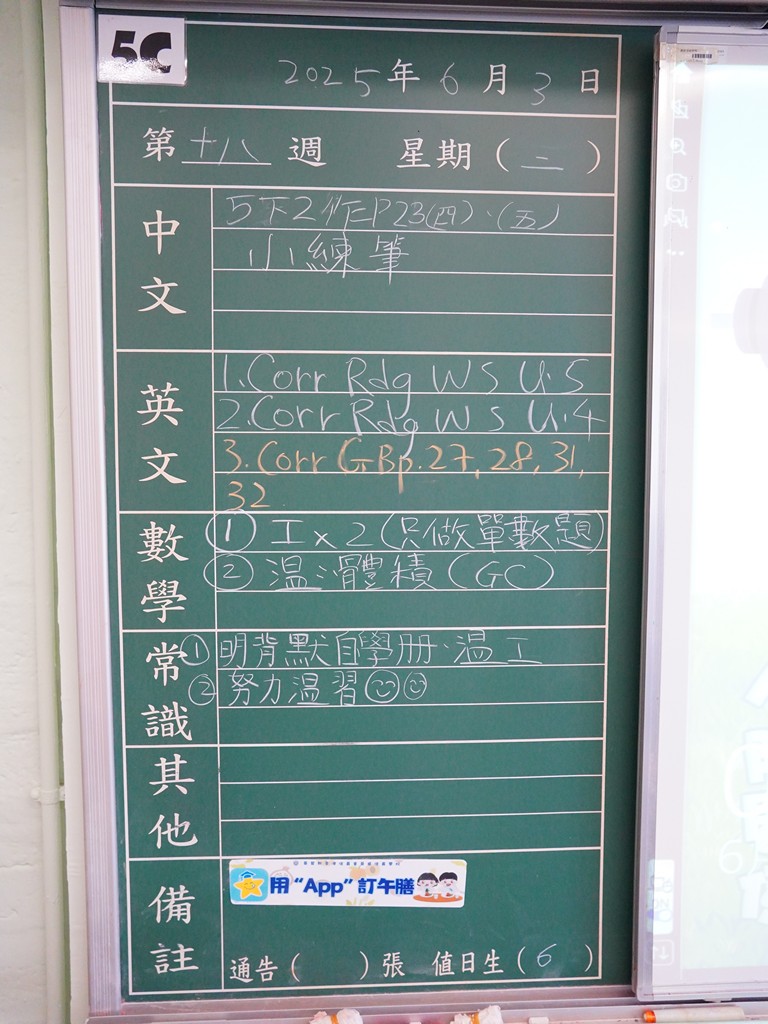 5C
2025年6月3日
第十八週 星期(二)
中文
5下2作P23(四)、(五)
小練筆
英文
1.Corr Rdg WS U.5
2.Corr Rdg WS U.4
3.Corr GBp.27, 28, 31,
32
數學
① 工x2(只做單數題)
② 温:體積(GC)
常識
① 明背默自學册、温工
② 努力温習
其他
備註
用“App”訂午膳
通告( )張 值日生(6)